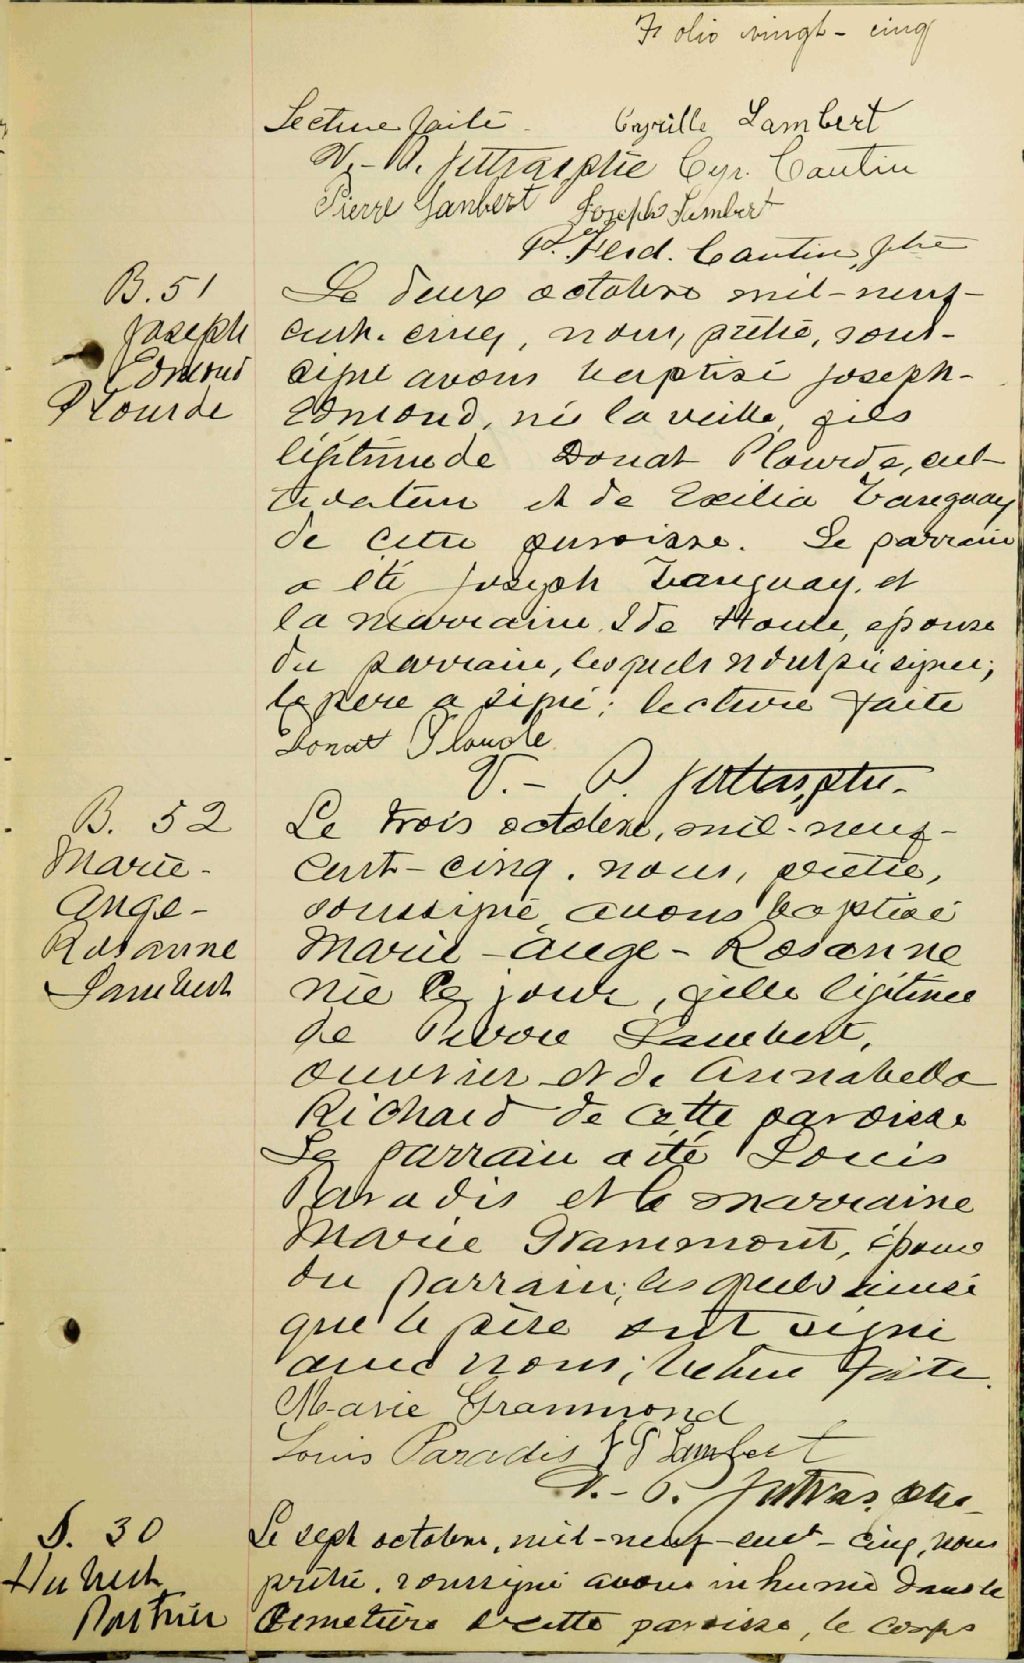 Folio vingt-cinq
Lecture faite. Cyrille Lambert
V.-P. Jutras, ptre Cyr. Cantin
Pierre Lambert Joseph Lambert
P. Ferd. Cantin, ptre
B. 51
Joseph
Edmond
Plourde
Le deux octobre mil-neuf-
cent-cinq, nous, prêtre, sous-
signé avons baptisé Joseph-
Edmond, né la veille, fils
légitime de Donat Plourde, cul-
tivateur et de Exilia Tanguay
de cette paroisse. Le parrain
a été Joseph Tanguay, et
la marraine Ida Houle, épouse
du parrain, lesquels n'ont pu signer;
le père a signé; lecture faite
Donat Plourde
V.-P. Jutras, ptre.
B. 52
Marie-
Ange-
Rosanne
Lambert
Le trois octobre, mil-neuf-
cent-cinq, nous, prêtre,
soussigné, avons baptisé
Marie-Ange-Rosanne
née ce jour, fille légitime
de Pierre Lambert,
ouvrier et de Annabella
Richard de cette paroisse
Le parrain a été Louis
Paradis et la marraine
Marie Grammont, épouse
du parrain; lesquels ainsi
que le père ont signé
avec nous; lecture faite.
Marie Grammond
Louis Paradis Lambert
V.-P. Jutras, ptre
S. 30
Hubert
Le sept octobre, mil-neuf-cent-cinq, nous
prêtre, soussigné avons inhumé dans le
cimetière de cette paroisse, le corps